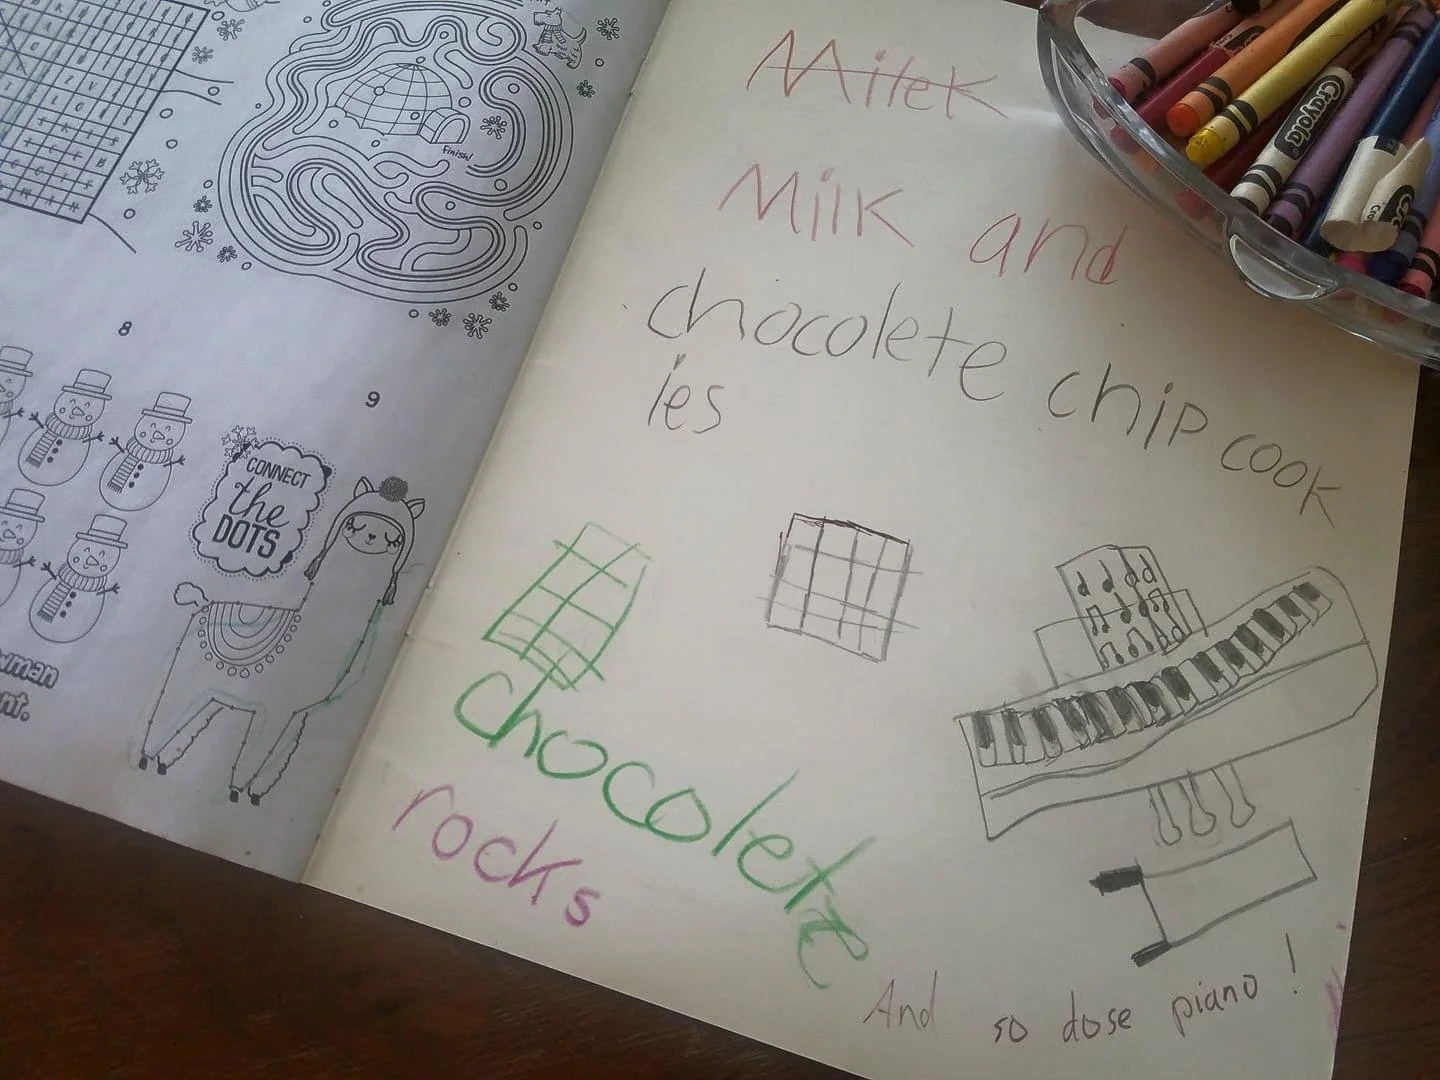 finish!
8
9
CONNECT
the
DOTS
wman
nt.
Milek
Milk and
chocolete chip cook
ies
chocolete
rocks
And so dose piano!
Crayola